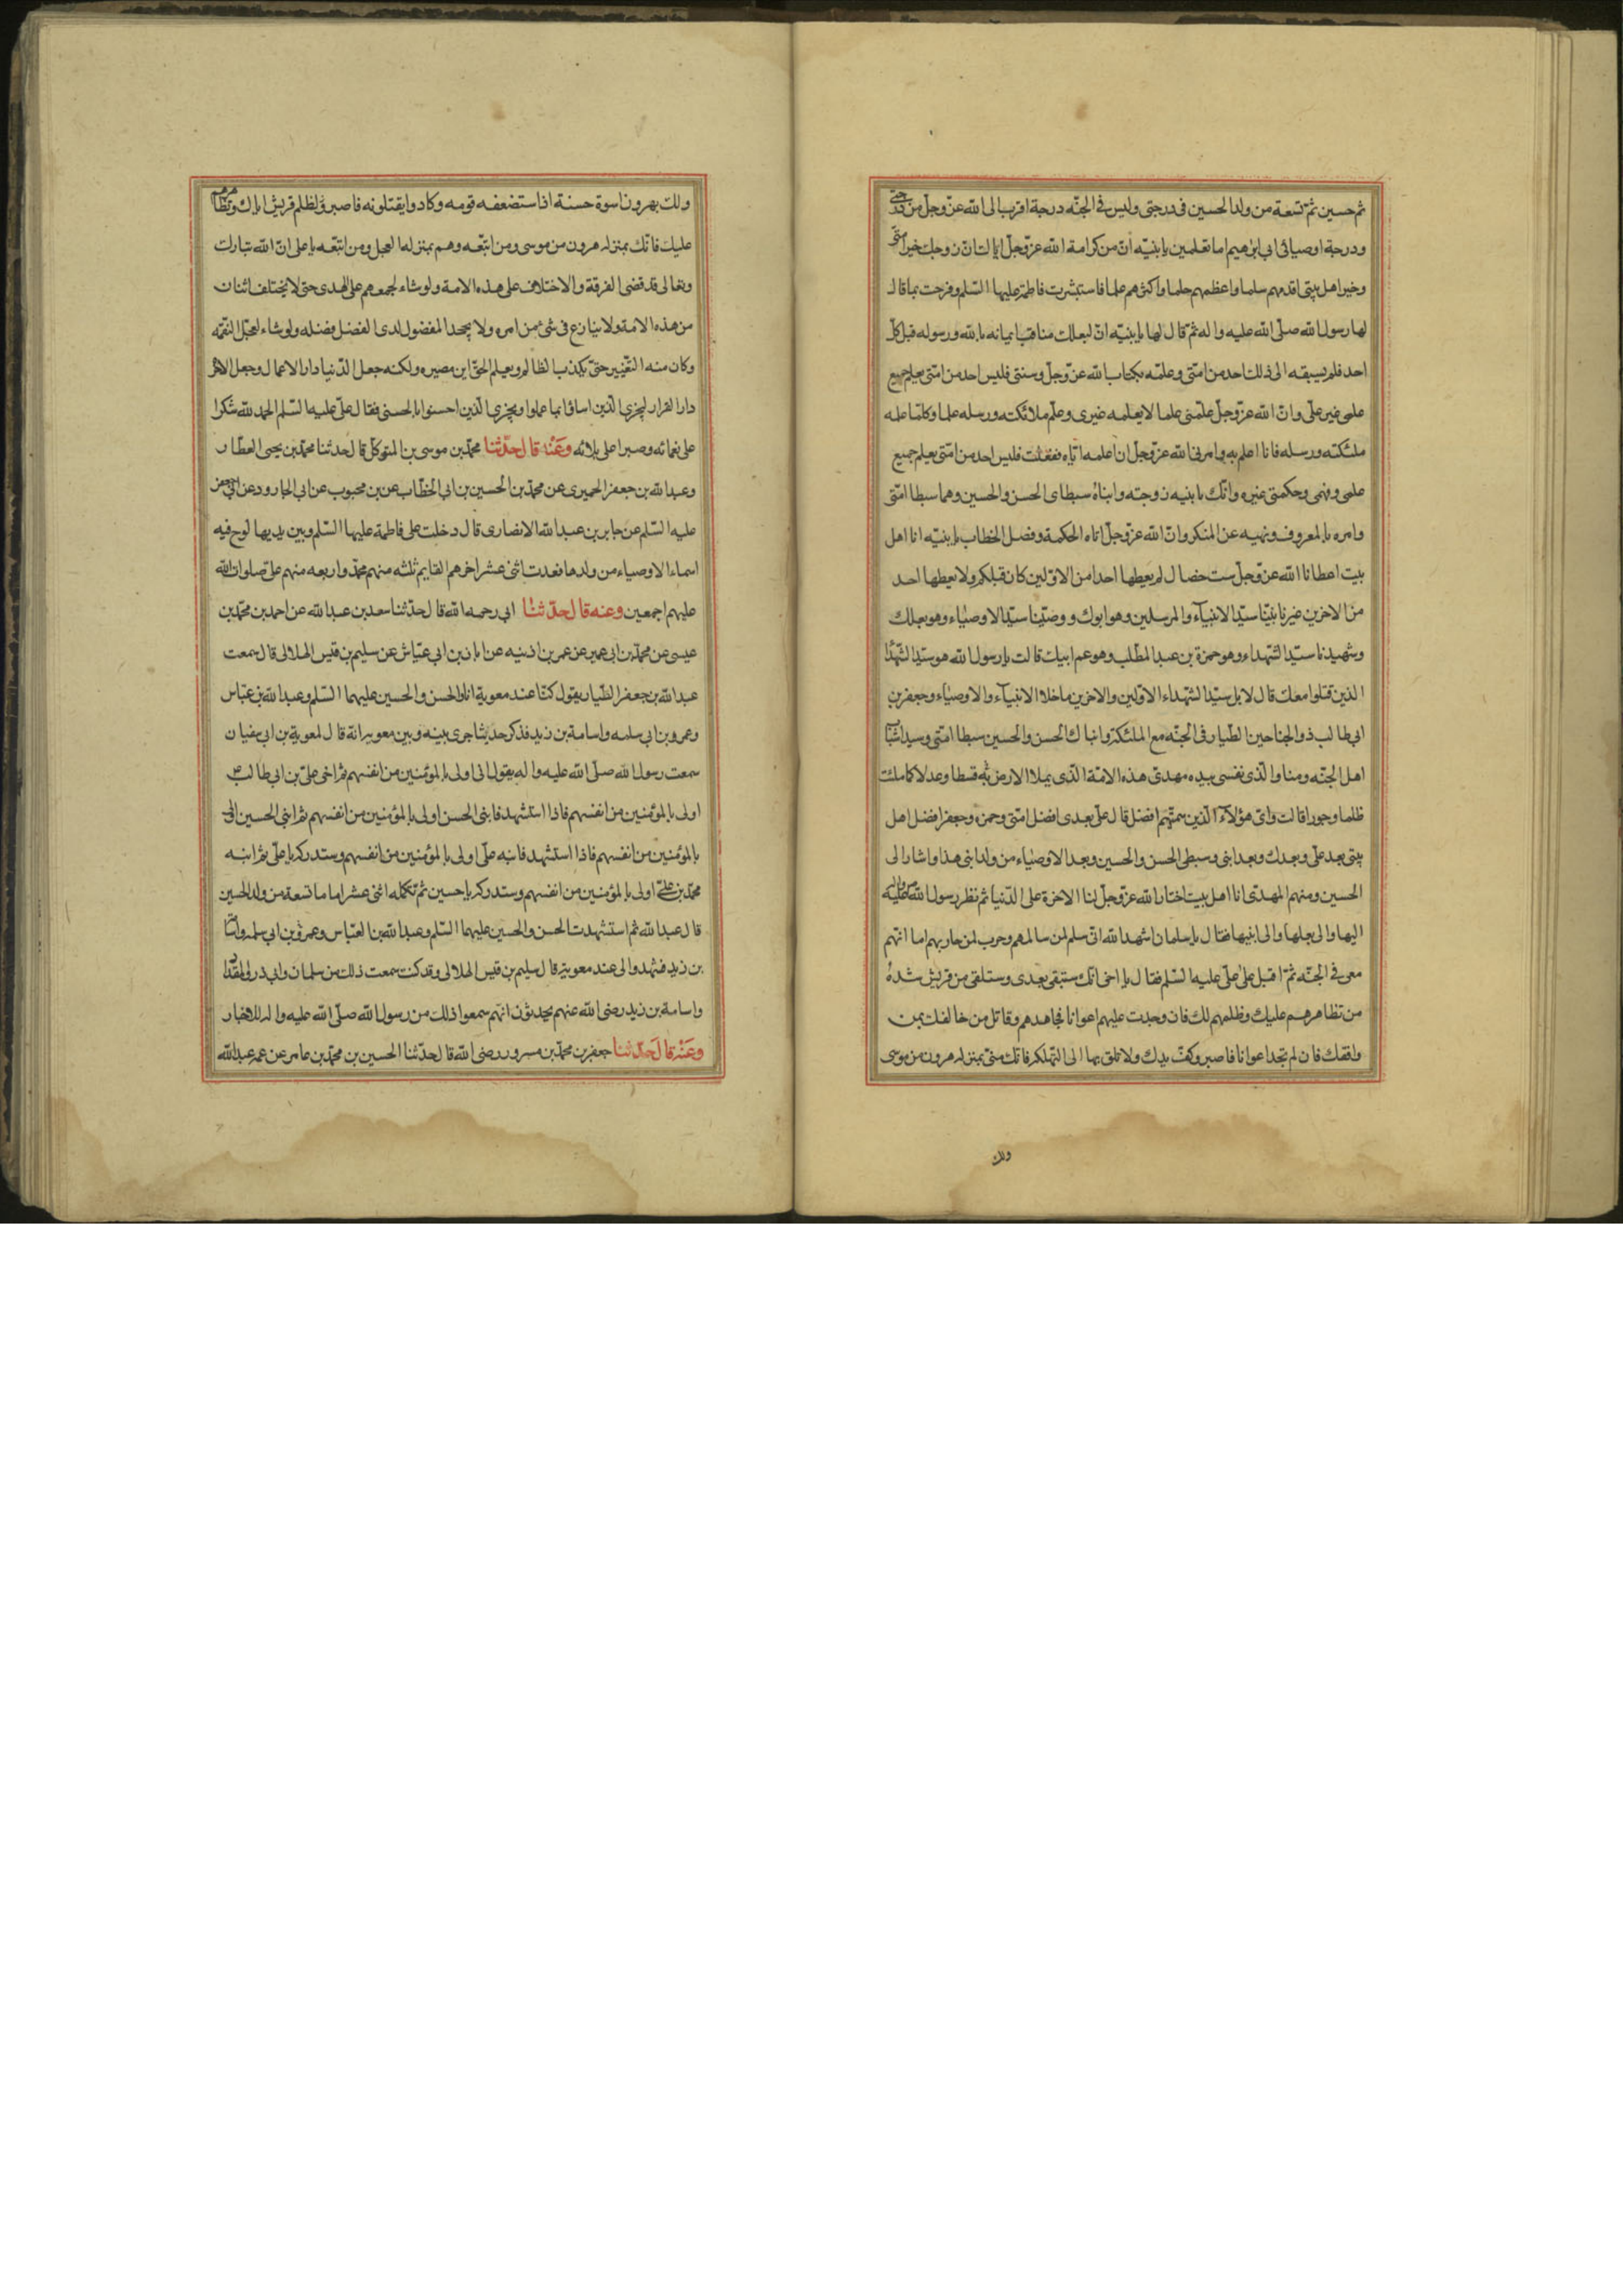 ثم حسين ثم تسعة من ولد الحسين في درجتي وليس في الجنّه درجة اقرب الى الله عزّ وجلّ من درجتى
ودرجة اوصيائى ابى ابرهيم اما تعلمين يا بنيّه انّ من كرامة الله عزّ وجلّ اياك ان زوجك خير امتى
وخير اهل بيتى اقدمهم سلما واعظمهم حلما واكثرهم علما فاستبشرت فاطمة عليها السّلم وفرحت بما قال
لها رسول الله صلّى الله عليه واله ثمّ قال لها يا بنيّه انّ لبعلك مناقب ايمانه بالله ورسوله قبل كلّ
احد فلم يسبقه الى ذلك احد من امتى وعلمه بكتاب الله عزّ وجلّ وسنتى فليس احد من امتى يعلم جميع
علمى غير علّى وانّ الله عزّ وجلّ علّمنى علما لا يعلمه غيرى وعلّم ملائكته ورسله علما وكلّما علمه
ملئكته ورسله فانا اعلم به وامرنى الله عزّ وجلّ ان اعلمه ايّاه ففعلت فليس احد من امّتى يعلم جميع
علمى وفهمى وحكمتى غيره وانّك يا بنيه زوجته وابناه سبطاى الحسن والحسين وهما سبطا امّتى
وامره بالمعروف ونهيه عن المنكر وانّ الله عزّ وجلّ اتاه الحكمة وفصل الخطاب يا بنيّه انا اهل
بيت اعطانا الله عزّ وجلّ ست خصال لم يعطها احدا من الاوّلين كان قبلكم ولا يعطيها احد
من الاخرين غيرنا نبيّنا سيّد الانبيآء والمرسلين وهو ابوك ووصيّنا سيّد الاوصياء وهو بعلك
وشهيدنا سيّد الشهداء وهو حمزة بن عبد المطّلب وهو عم ابيك قالت يا رسول الله هو سيّد الشهدا
الذين قتلوا معك قال لا بل سيّد الشهداء الاوّلين والاخرين ما خلا الانبيآء والاوصياء وجعفر بن
ابى طالب ذو الجناحين الطيار فى الجنّه مع الملئكة وابناك الحسن والحسين سبطا امتى وسيدا شباب
اهل الجنّه ومنا والّذى نفسى بيده مهدى هذه الامّة الّذى يملا الارض به قسطا وعدلا كما ملئت
ظلما وجورا قالت واىّ هؤلآء الذين سمّيتهم افضل قال علّى بعدى افضل امتى وحمزه وجعفر افضل اهل
بيتى بعد علّى وبعدك وبعد ابنى وسبطى الحسن والحسين وبعد الاوصياء من ولد ابنى هذا واشار الى
الحسين ومنهم المهدى انا اهل بيت اختار الله عزّ وجلّ لنا الاخرة على الدّنيا ثم نظر رسول الله
اليها والى بعلها والى ابنيها فقال يا سلمان اشهد الله انّى سلم لمن سالمهم وحرب لمن حاربهم اما انهم
معى فى الجنّه ثمّ اقبل على علّى عليه السّلم فقال يا اخى انّك ستبقى بعدى وستلقى من قريش شدة
من تظاهرهم عليك وظلمهم لك فان وجدت عليهم اعوانا فجاهدهم وقاتل من خالفك بمن
وافقك فان لم تجد اعوانا فاصبر وكفّ يدك ولا تلق بها الى التهلكه فانّك منّى بمنزله هرون من موسى
ولك
ولك بهرون اسوة حسنة اذ استضعفه قومه وكادوا يقتلونه فاصبر لظلم قريش اياك وتظاهرهم
عليك فانّك بمنزله هرون من موسى ومن اتبّعه وهم بمنزله العجل ومن اتبّعه يا على انّ الله تبارك
وتعالى قد قضى الفرقة والاختلاف على هذه الامة ولو شاء لجمعهم على الهدى حتى لا يختلف اثنان
من هذه الامة ولا يتنازع فى شئ من امره ولا يجحد المفضول لذى الفضل فضله ولو شاء لعجّل النّقمه
وكان منه التّغيير حتّى يكذب الظالم ويعلم الحقّ اين مصيره ولكنه جعل الدّنيا دار الاعمال وجعل الاخره
دار القرار ليجزى الّذين اساؤا بما عملوا ويجزى الّذين احسنوا بالحسنى فقال علّى عليه السّلم الحمد لله شكرا
على نعمائه وصبرا على بلائه وعنه قال حدّثنا محمّد بن موسى بن المتوكّل قال حدثنا محمّد بن يحيى العطار
وعبد الله بن جعفر الحميرى عن محمّد بن الحسين بن ابى الخطّاب عن بن محبوب عن ابى الجارود عن ابى جعفر
عليه السّلم عن جابر بن عبد الله الانصارى قال دخلت على فاطمة عليها السّلم وبين يديها لوح فيه
اسماء الاوصياء من ولدها فعددت اثنى عشر اخرهم القايم ثلثه منهم محمّد واربعه منهم على صلوات الله
عليهم اجمعين وعنه قال حدّثنا ابى رحمه الله قال حدّثنا سعد بن عبد الله عن احمد بن محمّد بن
عيسى عن محمّد بن ابى عمير عن عمر بن اذينه عن ابان بن ابى عيّاش عن سليم بن قيس الهلالى قال سمعت
عبد الله بن جعفر الطّيار يقول كنّا عند معوية انا والحسن والحسين عليهما السّلم وعبد الله بن عبّاس
وعمرو بن ابى سلمه واسامة بن زيد فذكر حديثا جرى بينه وبين معويه انّه قال لمعوية بن ابى سفيان
سمعت رسول الله صلّى الله عليه واله يقول انى اولى بالمؤمنين من انفسهم ثم اخى علىّ بن ابى طالب
اولى بالمؤمنين من انفسهم فاذا استشهد فابنى الحسن اولى بالمؤمنين من انفسهم ثم ابنى الحسين اولى
بالمؤمنين من انفسهم فاذا استشهد فابنه علّى اولى بالمؤمنين من انفسهم وستدركه يا علّى ثم ابنه
محمّد بن علىّ اولى بالمؤمنين من انفسهم وستدركه يا حسين ثم تكمله اثنى عشر اماما تسعة من ولد الحسين
قال عبد الله ثم استشهدت الحسن والحسين عليهما السّلم وعبد الله بن العبّاس وعمرو بن ابى سلمه واسامة
بن زيد فشهدوا لى عند معوية قال سليم بن قيس الهلالى وقد كنت سمعت ذلك من سلمان وابى ذر والمقداد
واسامة بن زيد رضى الله عنهم يحدثون انهم سمعوا ذلك من رسول الله صلّى الله عليه واله
وعنه قال حدّثنا جعفر بن محمّد بن مسرور رضى الله قال حدّثنا الحسين بن محمّد بن عامر عن عمه عبد الله